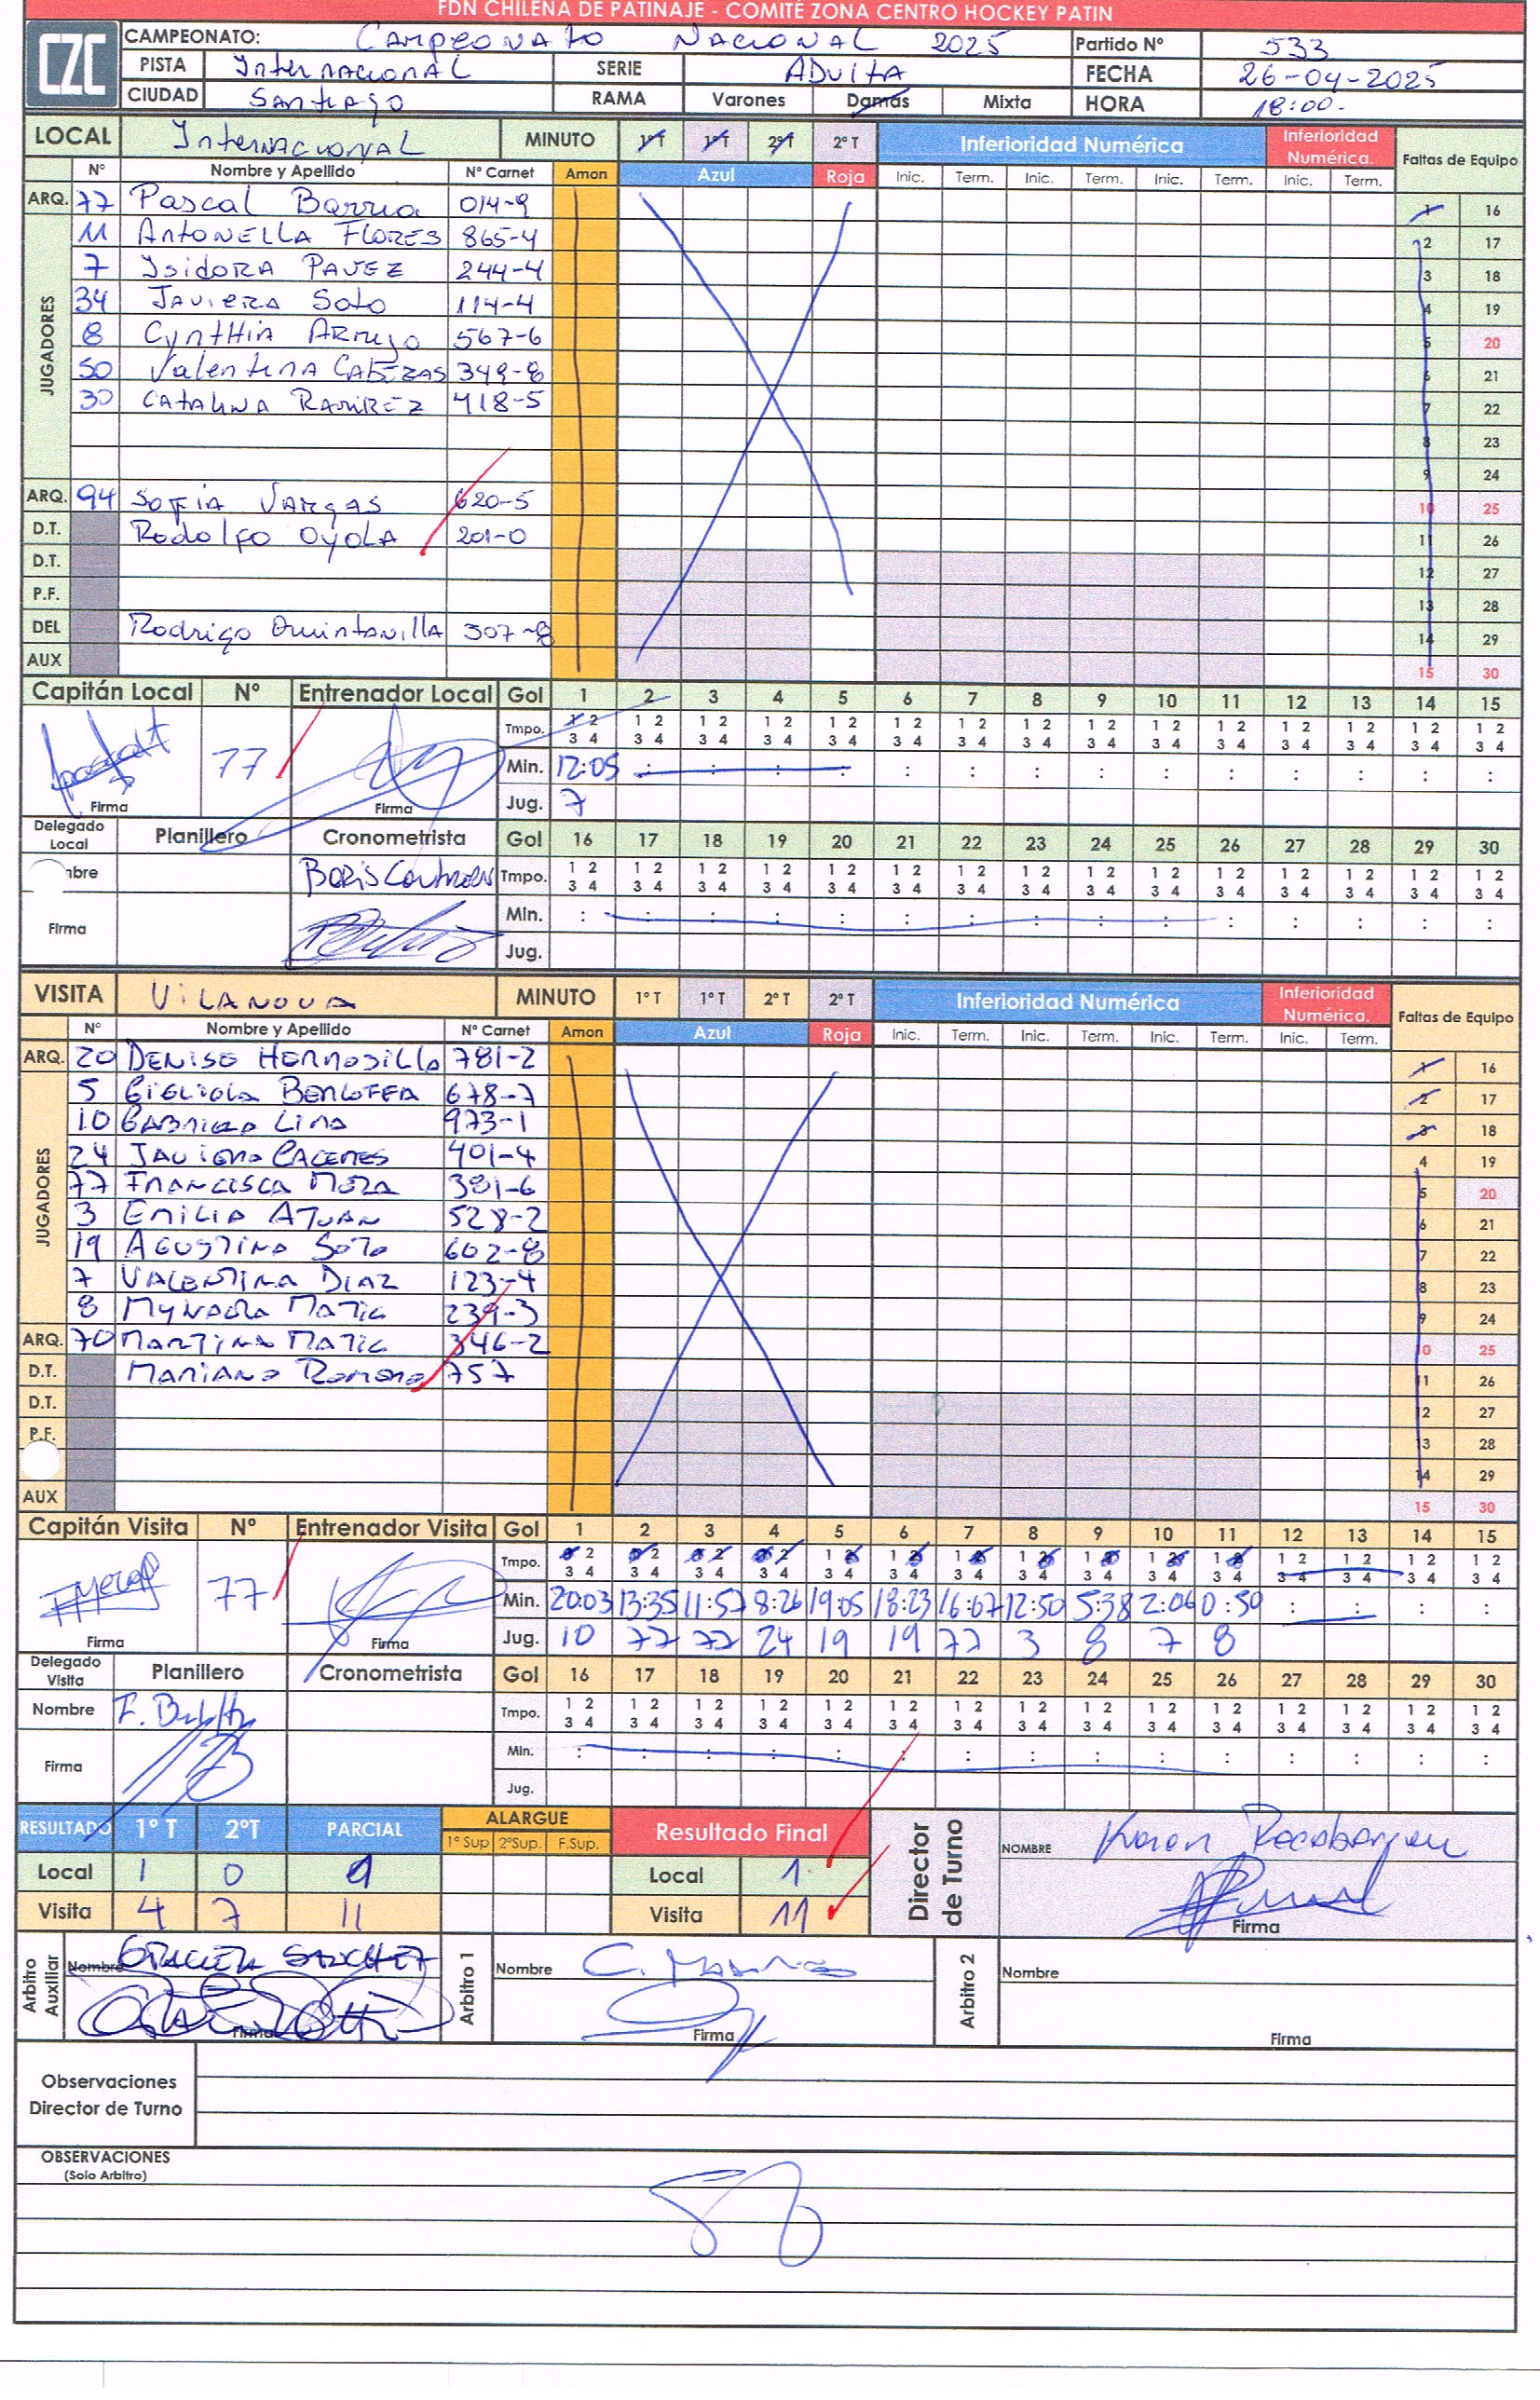 FDN CHILENA DE PATINAJE - COMITÉ ZONA CENTRO HOCKEY PATIN
CZC
CAMPEONATO: CAMPEONATO NACIONAL 2025 Partido Nº 533
PISTA Internacional SERIE ADULTA FECHA 26-04-2025
CIUDAD SANTIAGO RAMA Varones Damas Mixta HORA 18:00.
LOCAL Internacional MINUTO 1º T 1º T 2º T 2º T Inferioridad Numérica Inferioridad Numérica. Faltas de Equipo
Nº Nombre y Apellido Nº Carnet Amon Azul Roja Inic. Term. Inic. Term. Inic. Term. Inic. Term.
ARQ. 77 Pascal Barria 014-9 1 16
JUGADORES
11 ANTONELLA FLORES 865-4 2 17
7 ISIDORA PAVEZ 244-4 3 18
34 JAVIERA Soto 114-4 4 19
8 CYNTHIA Armijo 567-6 5 20
50 Valentina CABEZAS 349-8 6 21
30 CATALINA RAMIREZ 418-5 7 22
8 23
9 24
ARQ. 94 SOFIA VARGAS 620-5 10 25
D.T. Rodolfo OYOLA 201-0 11 26
D.T. 12 27
P.F. 13 28
DEL Rodrigo Quintanilla 307-8 14 29
AUX 15 30
Capitán Local Nº Entrenador Local Gol 1 2 3 4 5 6 7 8 9 10 11 12 13 14 15
Tmpo. 1 2 1 2 1 2 1 2 1 2 1 2 1 2 1 2 1 2 1 2 1 2 1 2 1 2 1 2 1 2
3 4 3 4 3 4 3 4 3 4 3 4 3 4 3 4 3 4 3 4 3 4 3 4 3 4 3 4 3 4
77 Min. 12:05 : : : : : : : : : : : : : :
Firma Firma Jug. 7
Delegado Local Planillero Cronometrista Gol 16 17 18 19 20 21 22 23 24 25 26 27 28 29 30
mbre Boris Tmpo. 1 2 1 2 1 2 1 2 1 2 1 2 1 2 1 2 1 2 1 2 1 2 1 2 1 2 1 2 1 2
3 4 3 4 3 4 3 4 3 4 3 4 3 4 3 4 3 4 3 4 3 4 3 4 3 4 3 4 3 4
Firma Min. : : : : : : : : : : : : : : :
Jug.
VISITA VILANOVA MINUTO 1º T 1º T 2º T 2º T Inferioridad Numérica Inferioridad Numérica. Faltas de Equipo
Nº Nombre y Apellido Nº Carnet Amon Azul Roja Inic. Term. Inic. Term. Inic. Term. Inic. Term.
ARQ. 20 DENISE HERMOSILLA 781-2 1 16
JUGADORES
5 678-7 2 17
10 GABRIELA LIMA 973-1 3 18
24 JAVIERA CACERES 401-4 4 19
77 FRANCISCA MERA 381-6 5 20
3 EMILIA 528-2 6 21
19 AGUSTINA SOTO 602-8 7 22
7 VALENTINA DIAZ 123-4 8 23
8 MATIC 239-3 9 24
ARQ. 70 MARTINA MATIC 346-2 10 25
D.T. MARIANO ROMERO 757 11 26
D.T. 12 27
P.F. 13 28
14 29
AUX 15 30
Capitán Visita Nº Entrenador Visita Gol 1 2 3 4 5 6 7 8 9 10 11 12 13 14 15
Tmpo. 1 2 1 2 1 2 1 2 1 2 1 2 1 2 1 2 1 2 1 2 1 2 1 2 1 2 1 2 1 2
3 4 3 4 3 4 3 4 3 4 3 4 3 4 3 4 3 4 3 4 3 4 3 4 3 4 3 4 3 4
77 Min. 20:03 13:35 11:57 8:26 19:05 18:23 16:07 12:50 5:38 2:06 0:50 : : : :
Firma Firma Jug. 10 77 77 24 19 19 77 3 8 7 8
Delegado Visita Planillero Cronometrista Gol 16 17 18 19 20 21 22 23 24 25 26 27 28 29 30
Nombre F. Tmpo. 1 2 1 2 1 2 1 2 1 2 1 2 1 2 1 2 1 2 1 2 1 2 1 2 1 2 1 2 1 2
3 4 3 4 3 4 3 4 3 4 3 4 3 4 3 4 3 4 3 4 3 4 3 4 3 4 3 4 3 4
Firma Min. : : : : : : : : : : : : : : :
Jug.
RESULTADO 1º T 2ºT PARCIAL ALARGUE Resultado Final Director de Turno
1º Sup 2ºSup. F.Sup. NOMBRE Karen Recabarren
Local 1 0 Local 1
Visita 4 7 11 Visita 11 Firma
Arbitro Auxiliar Nombre GRACIELA SANCHEZ Arbitro 1 Nombre C. Arbitro 2 Nombre
Firma Firma Firma
Observaciones
Director de Turno
OBSERVACIONES
(Solo Arbitro)